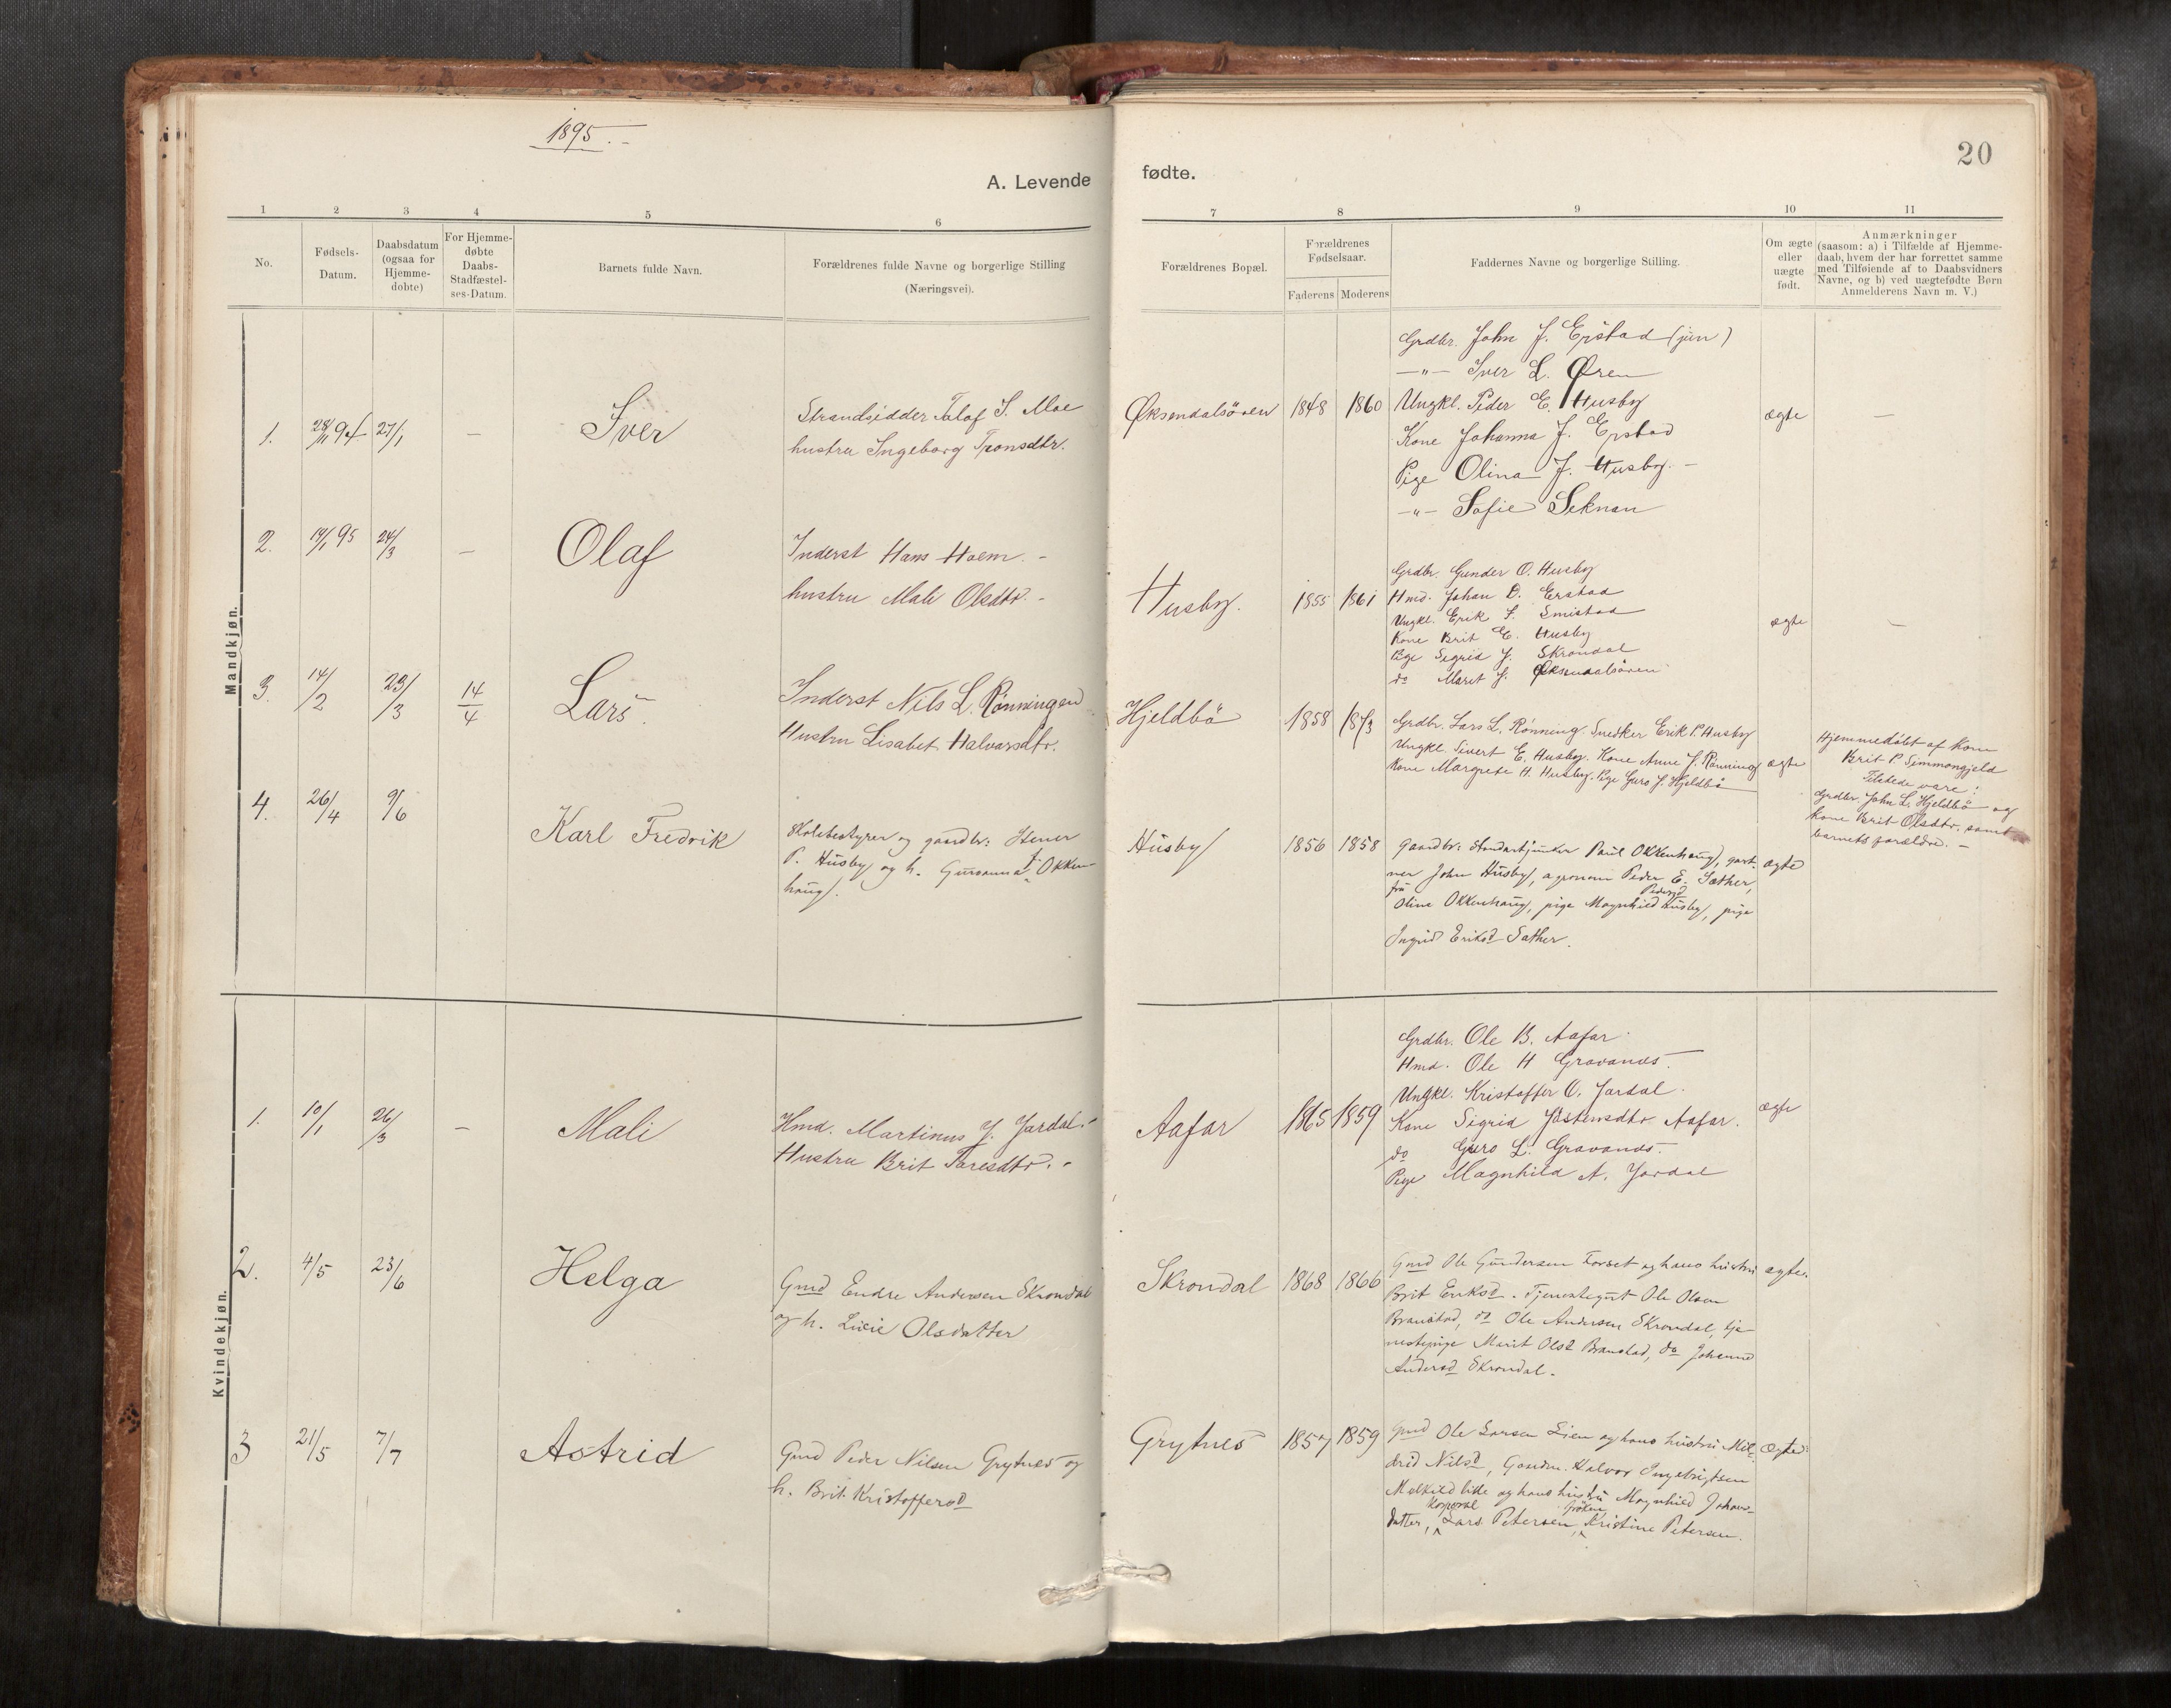 1895.
20
A. Levende
fødte.
1 2 3 4 5 6
7 8 9 10 11
No.
Fødsels-
Datum.
Daabsdatum
(ogsaa for
Hjemme-
døbte)
For Hjemme-
døbte
Daabs-
Stadfæstel-
ses-Datum.
Barnets fulde Navn.
Forældrenes fulde Navne og borgerlige Stilling
(Næringsvei).
Forældrenes Bopæl.
Forældrenes
Fødselsaar.
Faderens Moderens
Faddernes Navne og borgerlige Stilling.
Om ægte
eller
uægte
født.
Anmærkninger
(saasom: a) i Tilfælde af Hjemme-
daab, hvem der har forrettet samme
med Tilføiende af to Daabsvidners
Navne, og b) ved uægtefødte Børn
Anmelderens Navn m. V.)
Mandkjøn.
1. 28/11 94 27/1 — Iver
Strandsidder Talaf I. Moe
hustru Ingeborg Tronsdtr.
Øksendalsören 1848 1860
Grdbr. John J. Erstad (jun)
—"— Iver L. Øren
Ungkl. Peder E. Husby
Kone Johanna J. Erstad
Pige Olina J. Husby. —
—"— Sofie Seknan
ægte —
2. 14/1 95 24/3 — Olaf
Inderst Hans Hoem. —
hustru Mali Olsdtr. —
Husby. 1855 1861
Grdbr. Gunder O. Husby
Hmd. Johan O. Erstad
Ungkl. Erik S. Smistad
Kone Brit E. Husby
Pige Sigrid J. Skrondal
do Maret J. Øksendalsören
ægte —
3. 14/2 23/3 14/4 Lars.
Inderst Nils L. Rønningen
Hustru Lisabet Halvarsdtr.
Hjeldbö 1858 1873
Grdbr. Lars L. Rønning. Snedker Erik P. Husby
Ungkl. Sivert E. Husby. Kone Anne J. Rønning
Kone Margrete H. Husby. Pige Guro J. Hjeldbö
ægte
Hjemmedöbt af Kone
Brit P. Simmongjeld
Tilstede vare:
Grdbr. John L. Hjeldbö og
Kone Brit Olsdtr. samt
barnets forældre. —
4. 26/4 9/6 Karl Fredrik
Skolebestyrer og gaardbr: Stener
P. Husby og h. Gurianna f. Okken-
haug.
Husby 1856 1858
gaardbr: Standartjunker Paul Okkenhaug, gart-
ner John Husby, agronom Peder E. Sæther,
fru Olina Okkenhaug, pige Magnhild Pedersd Husby, pige
Ingrid Eriksd Sæther.
ægte
Kvindekjøn.
1. 10/1 26/3 — Mali
Hmd. Martinus J. Jardal. —
Hustru Brit Taresdtr. —
Aafar 1865 1859
Grdbr. Ole B. Aafar.
Hmd. Ole H Gravanes.
Ungkl. Kristoffer O. Jardal.
Kone Sigrid Jöstensdtr Aafar.
do Guro L. Gravanes.
Pige Magnhild A. Jardal
ægte
2. 4/5 23/6 Helga
Gmd Endre Andersen Skrondal
og h. Livie Olsdatter
Skrondal 1868 1866
Gmd Ole Gundersen Forset og hans hustru
Brit Eriksd. Tjenestegut Ole Olsen
Branstad, do Ole Andersen Skrondal, tje-
nestepige Marit Olsd Branstad, do Johanne
Andersd Skrondal.
ægte.
3 21/5 7/7 Astrid
Gmd Peder Nilsen Grytnes og
h. Brit Kristoffersd
Grytnes 1857 1859
Gmd Ole Larsen Lien og hans hustru Mil-
drid Nilsd, Gaardm. Halvor Ingebrigtsen
Melkild lille og hans hustru Magnhild Johans-
datter, korporal Lars Petersen, frøken Kristine Petersen.
ægte